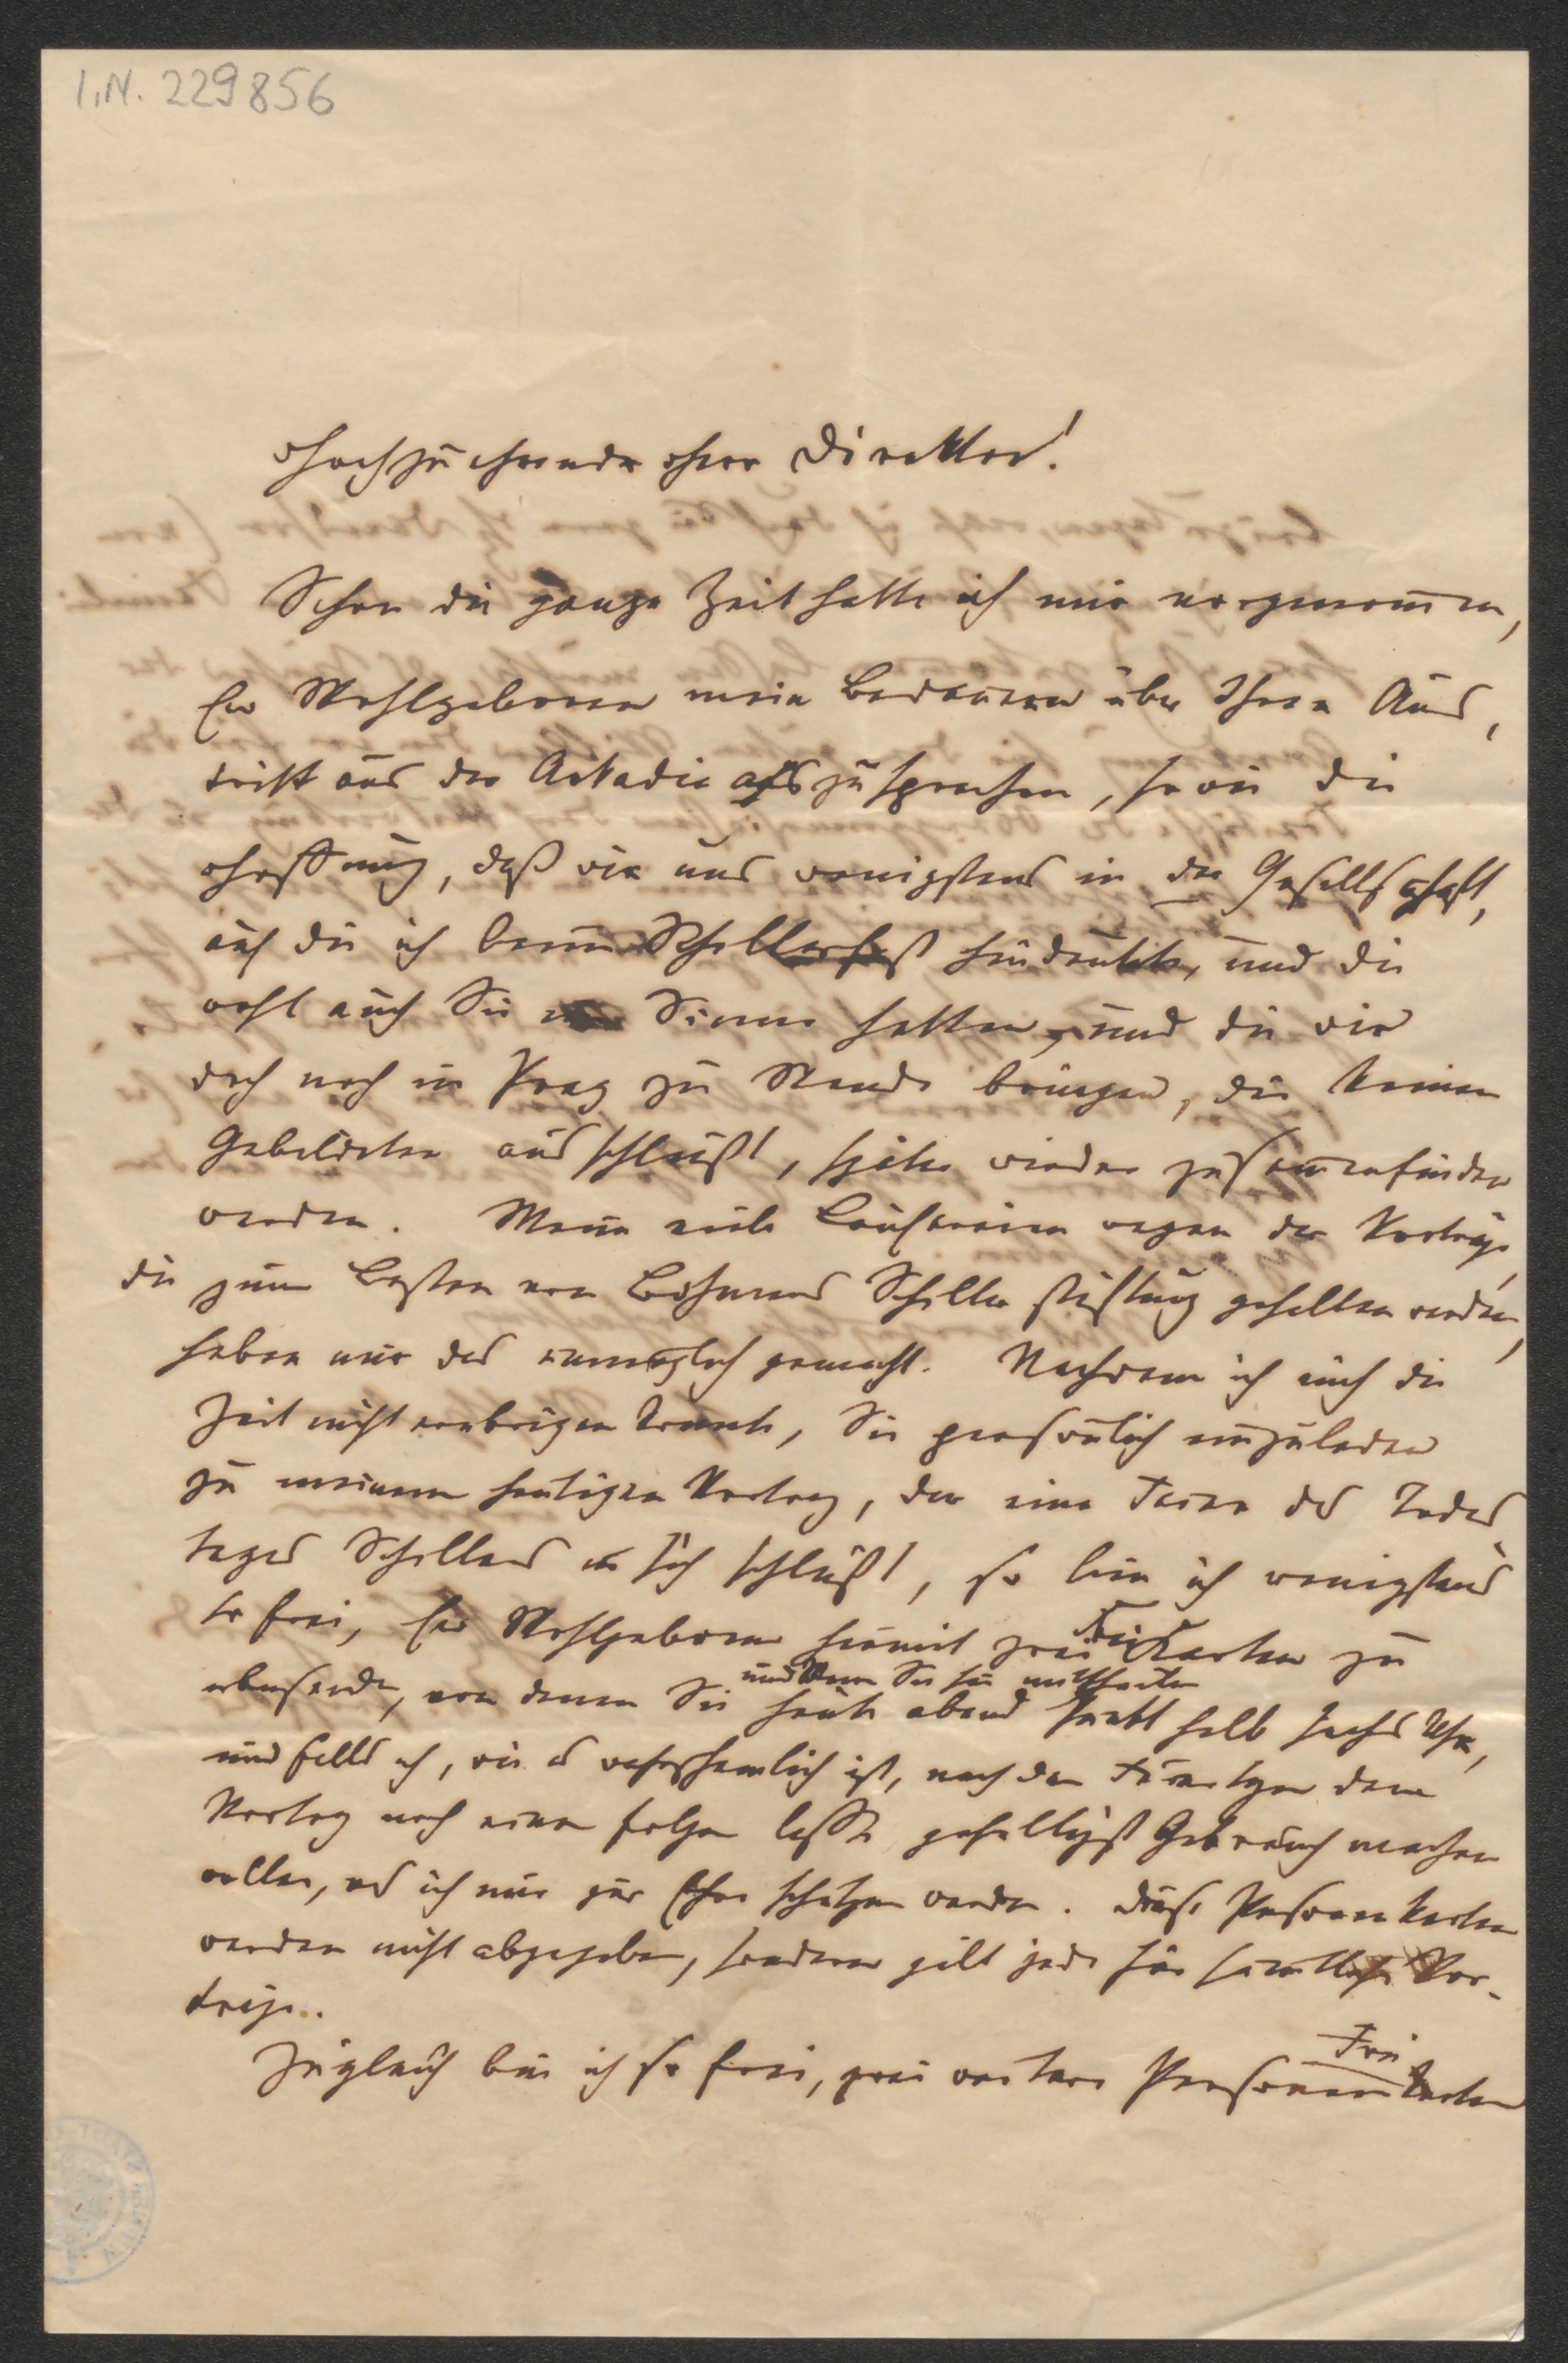 I.N. 229856
Hochzuehrender Herr Direktor!
Schon die ganze Zeit hatte ich mir vorgenommen,
Ew Wohlgeboren mein Bedauern über Ihren Aus-
tritt aus der Arkadia auszusprechen, sowie die
Hoffnung, daß wir uns wenigstens in der Gesellschaft,
auf die ich beim Schillerfest hindeutete, und die
wohl auch Sie im Sinne hatten, und die wir
doch noch in Prag zu Stande bringen, die keinen
Gebildeten ausschließt, später wieder zusammenfinden
werden. Meine viele Laufereien wegen der Vorträge,
die zum Besten von Böhmens Schillerstiftung gehalten werden,
haben mir das unmöglich gemacht. Nachdem ich auch die
Zeit nicht erübrigen konnte, Sie persönlich einzuladen
zu meinem heutigen Vortrag, der eine Feier des Todes
tages Schillers in sich schließt, so bin ich wenigstens
so frei, Ew Wohlgeboren hiemit zwei Freikarten zu
übersenden, von denen Sie und wem Sie sie mittheilen
heute abend Punkt halb sechs Uhr,
und falls ich, wie es wahrscheinlich ist, nach dem fünften dem
Vortrag noch einen folgen lasse gefälligst Gebrauch machen
wollen, was ich mir zur Ehre schätzen werde. Diese Personenkarten
werden nicht abgegeben, sondern gilt jede für sämmtliche Vor-
träge.
Zugleich bin ich so frei, zwei weitere Personen Frei karten